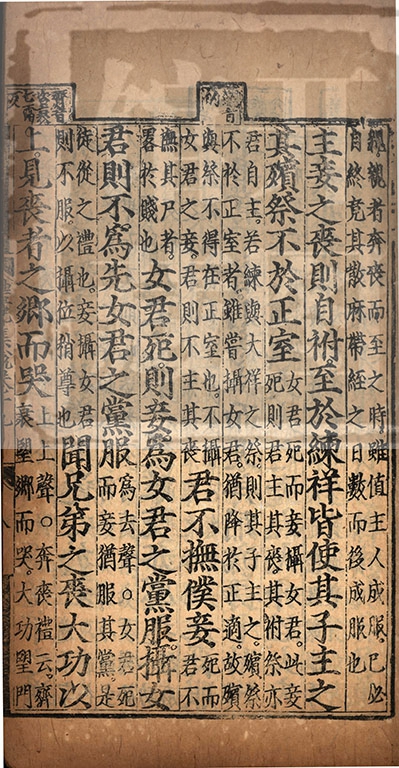 親親者奔喪而至之時雖值主人成服己必
自終竟其散麻帶絰之日數而後成服也
主妾之喪則自祔至於練祥皆使其子主之
其殯祭不於正室女君死而妾攝女君。此妾死則君主其喪。其祔祭亦
君自主。若練與大祥之祭。則其子主之。殯祭
不於正室者。雖嘗攝女君。猶降於正適。故殯
與祭不得在正室也。不攝女君之妾。君則不主其喪君不撫僕妾。死而君不
撫其尸者。畧於賤也女君死。則妾爲女君之黨服。攝女
君則不爲先女君之黨服爲去聲○女君死而妾猶服其黨。是
徒從之禮也。妾攝女君則不服。以攝位稍尊也聞兄第之喪大功以
上。見喪者之鄉而哭上上聲。○奔喪禮云。齊衰望鄉而哭。大功望門
齊音咨衰七雷反